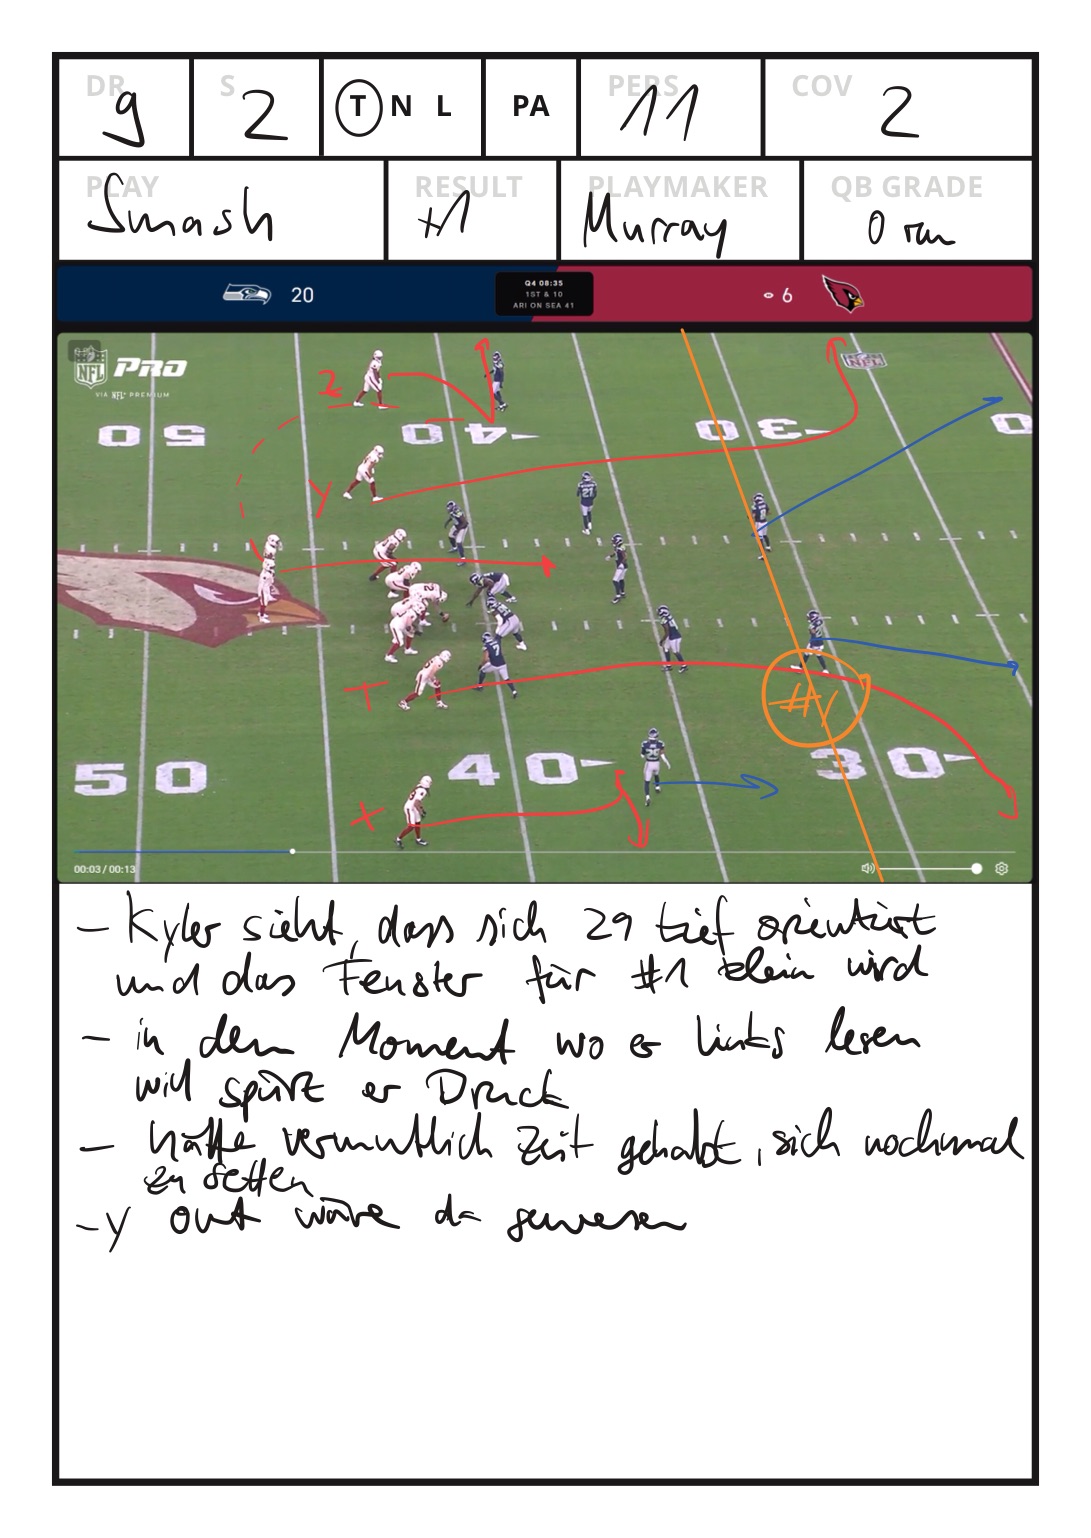 DR 9 S 2 T N L PA PERS 11 COV 2
PLAY Smash RESULT +1 PLAYMAKER Murray QB GRADE 0 run
20 Q4 08:35 6
1ST & 10
ARI ON SEA 41
NFL PRO
VIA NFL+ PREMIUM
NFL
Z
50 40 30
Y
T
#1
50 40 30
X
00:03 / 00:13
- Kyler sieht, dass sich 29 tief orientiert
und das Fenster für #1 klein wird
- in dem Moment wo er links lesen
will spürt er Druck
- hätte vermutlich Zeit gehabt, sich nochmal
zu setten
- Y out wäre da gewesen